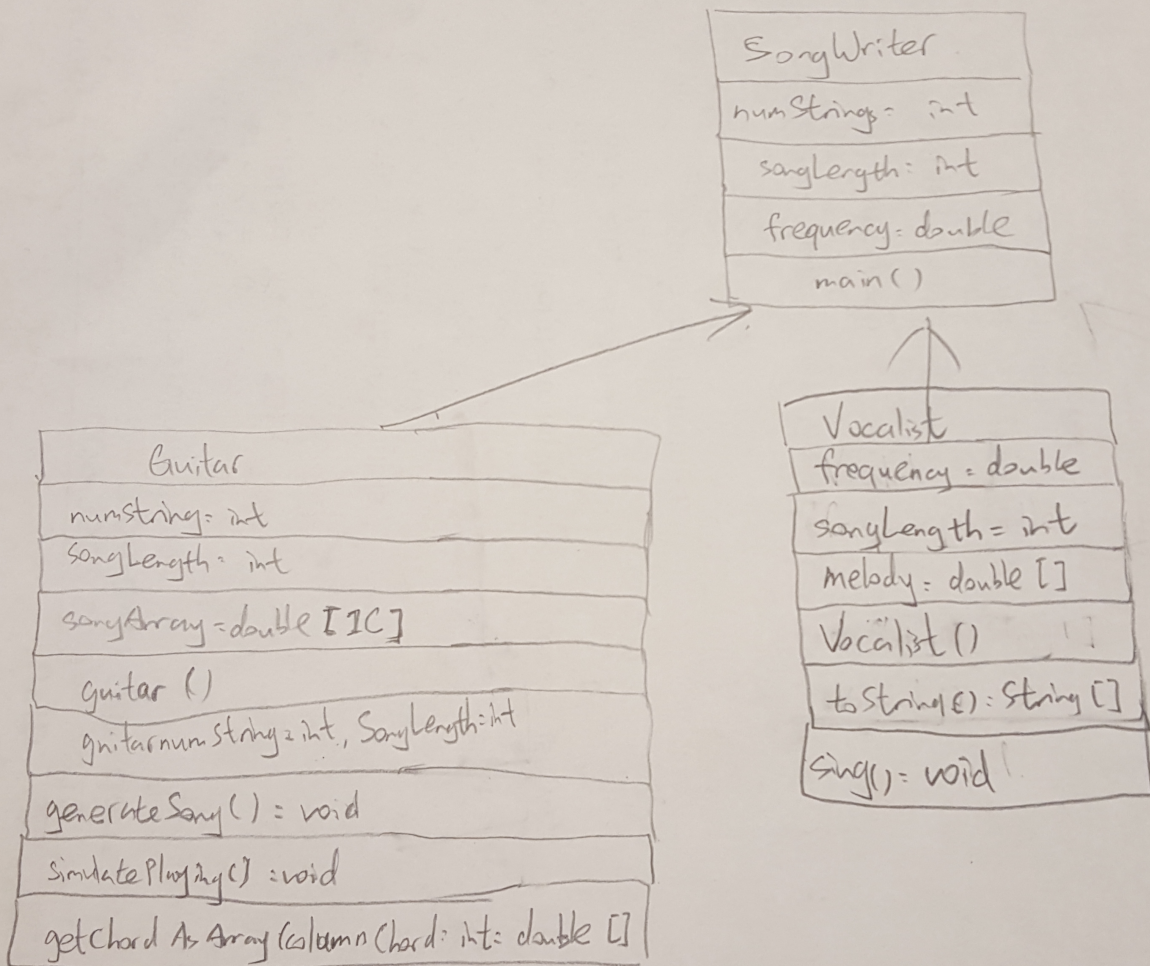 SongWriter
numStrings = int
songLength: int
frequency = double
main()
Guitar
numString = int
songLength: int
songArray = double [IC]
guitar ()
guitarnumString = int, SongLength = int
generateSong() = void
simulatePlaying() = void
getChord As Array (columnChord: int = double []
Vocalist
frequency = double
songLength = int
melody: double []
Vocalist ()
toString(): String []
sing() = void